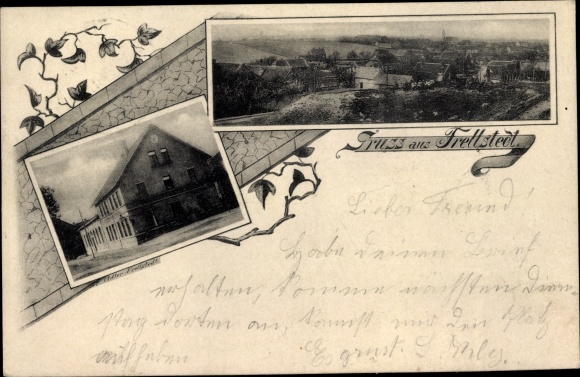 Gruss aus Frellstedt.
Frellstedt.
Lieber Freund!
Habe deinen Brief
erhalten, komme nächsten Diens-
tag dorten an, kannst mir den Platz
aufheben
Es grüsst